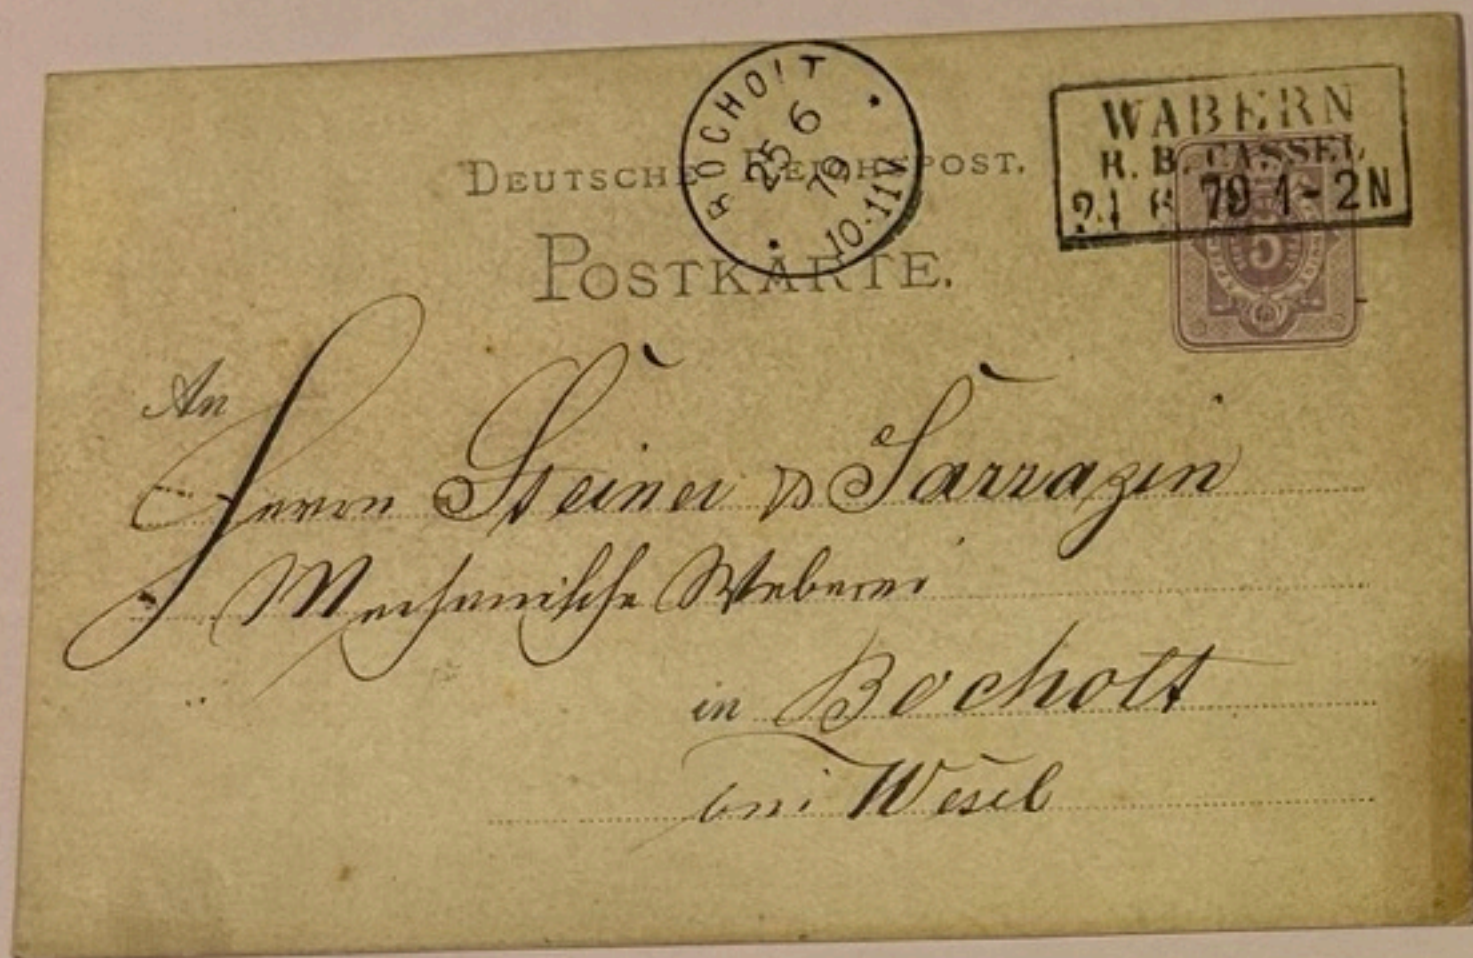 DEUTSCHE REICHSPOST.
POSTKARTE.
BOCHOLT
25 6
79
10-11V
WABERN
R. B. CASSEL
24 6 79 1-2N
5
An
Herrn Steiner & Sarrazin
Mechanische Weberei
in Bocholt
bei Wesel